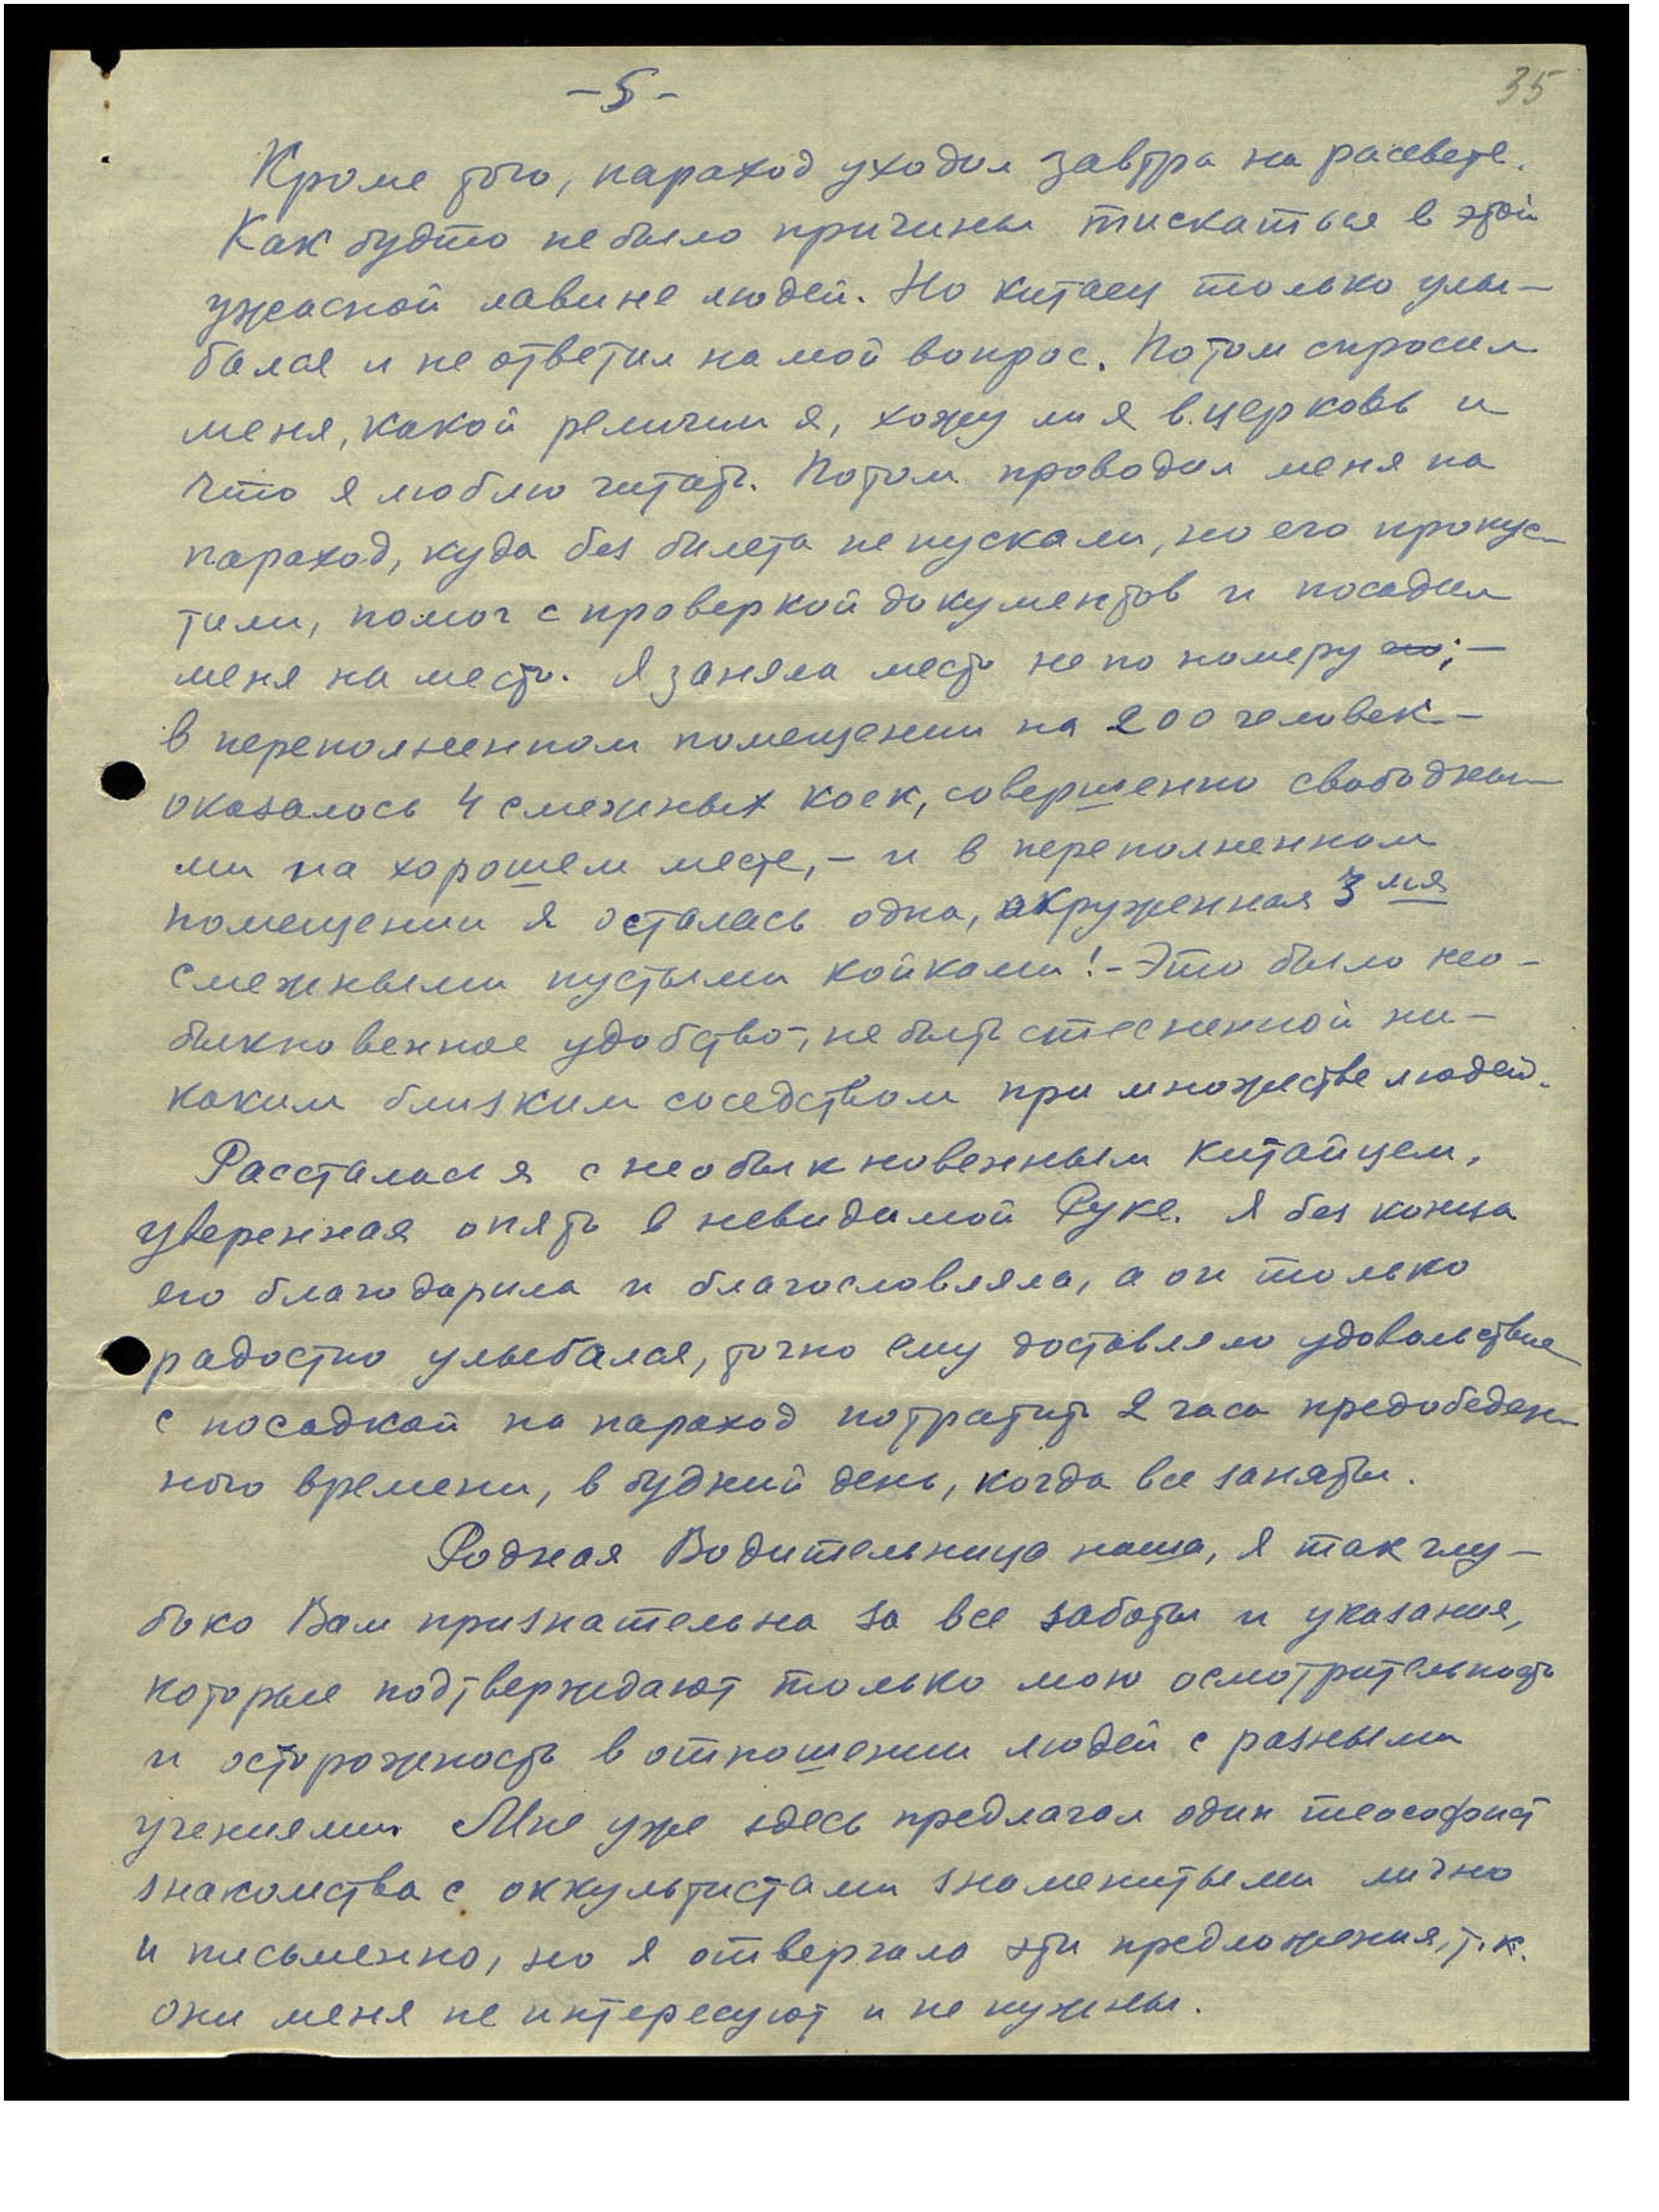 -5-
35
Кроме того, пароход уходил завтра на рассвете.
Как будто не было причины тискаться в этой
ужасной лавине людей. Но китаец только улы-
бался и не ответил на мой вопрос. Потом спросил
меня, какой религии я, хожу ли я в церковь и
что я люблю читать. Потом проводил меня на
пароход, куда без билета не пускали, но его пропус-
тили, помог с проверкой документов и посадил
меня на место. Я заняла место не по номеру; -
в переполненном помещении на 200 человек -
оказалось 4 смежных коек, совершенно свободны-
ми на хорошем месте, - и в переполненном
помещении я осталась одна, окруженная 3мя
смежными пустыми койками! - Это было нео-
быкновенное удобство, не быть стесненной ни-
каким близким соседством при множестве людей.
Рассталась я с необыкновенным китайцем,
уверенная опять в невидимой Руке. Я без конца
его благодарила и благословляла, а он только
радостно улыбался, точно ему доставляло удовольствие
с посадкой на пароход потратить 2 часа предобеден-
ного времени, в будний день, когда все заняты.
Родная Водительница наша, я так глу-
боко Вам признательна за все заботы и указания,
которые подтверждают только мою осмотрительность
и осторожность в отношении людей с разными
учениями. Мне уже здесь предлагал один теософист
знакомства с оккультистами знаменитыми лично
и письменно, но я отвергала эти предложения, т.к.
они меня не интересуют и не нужны.